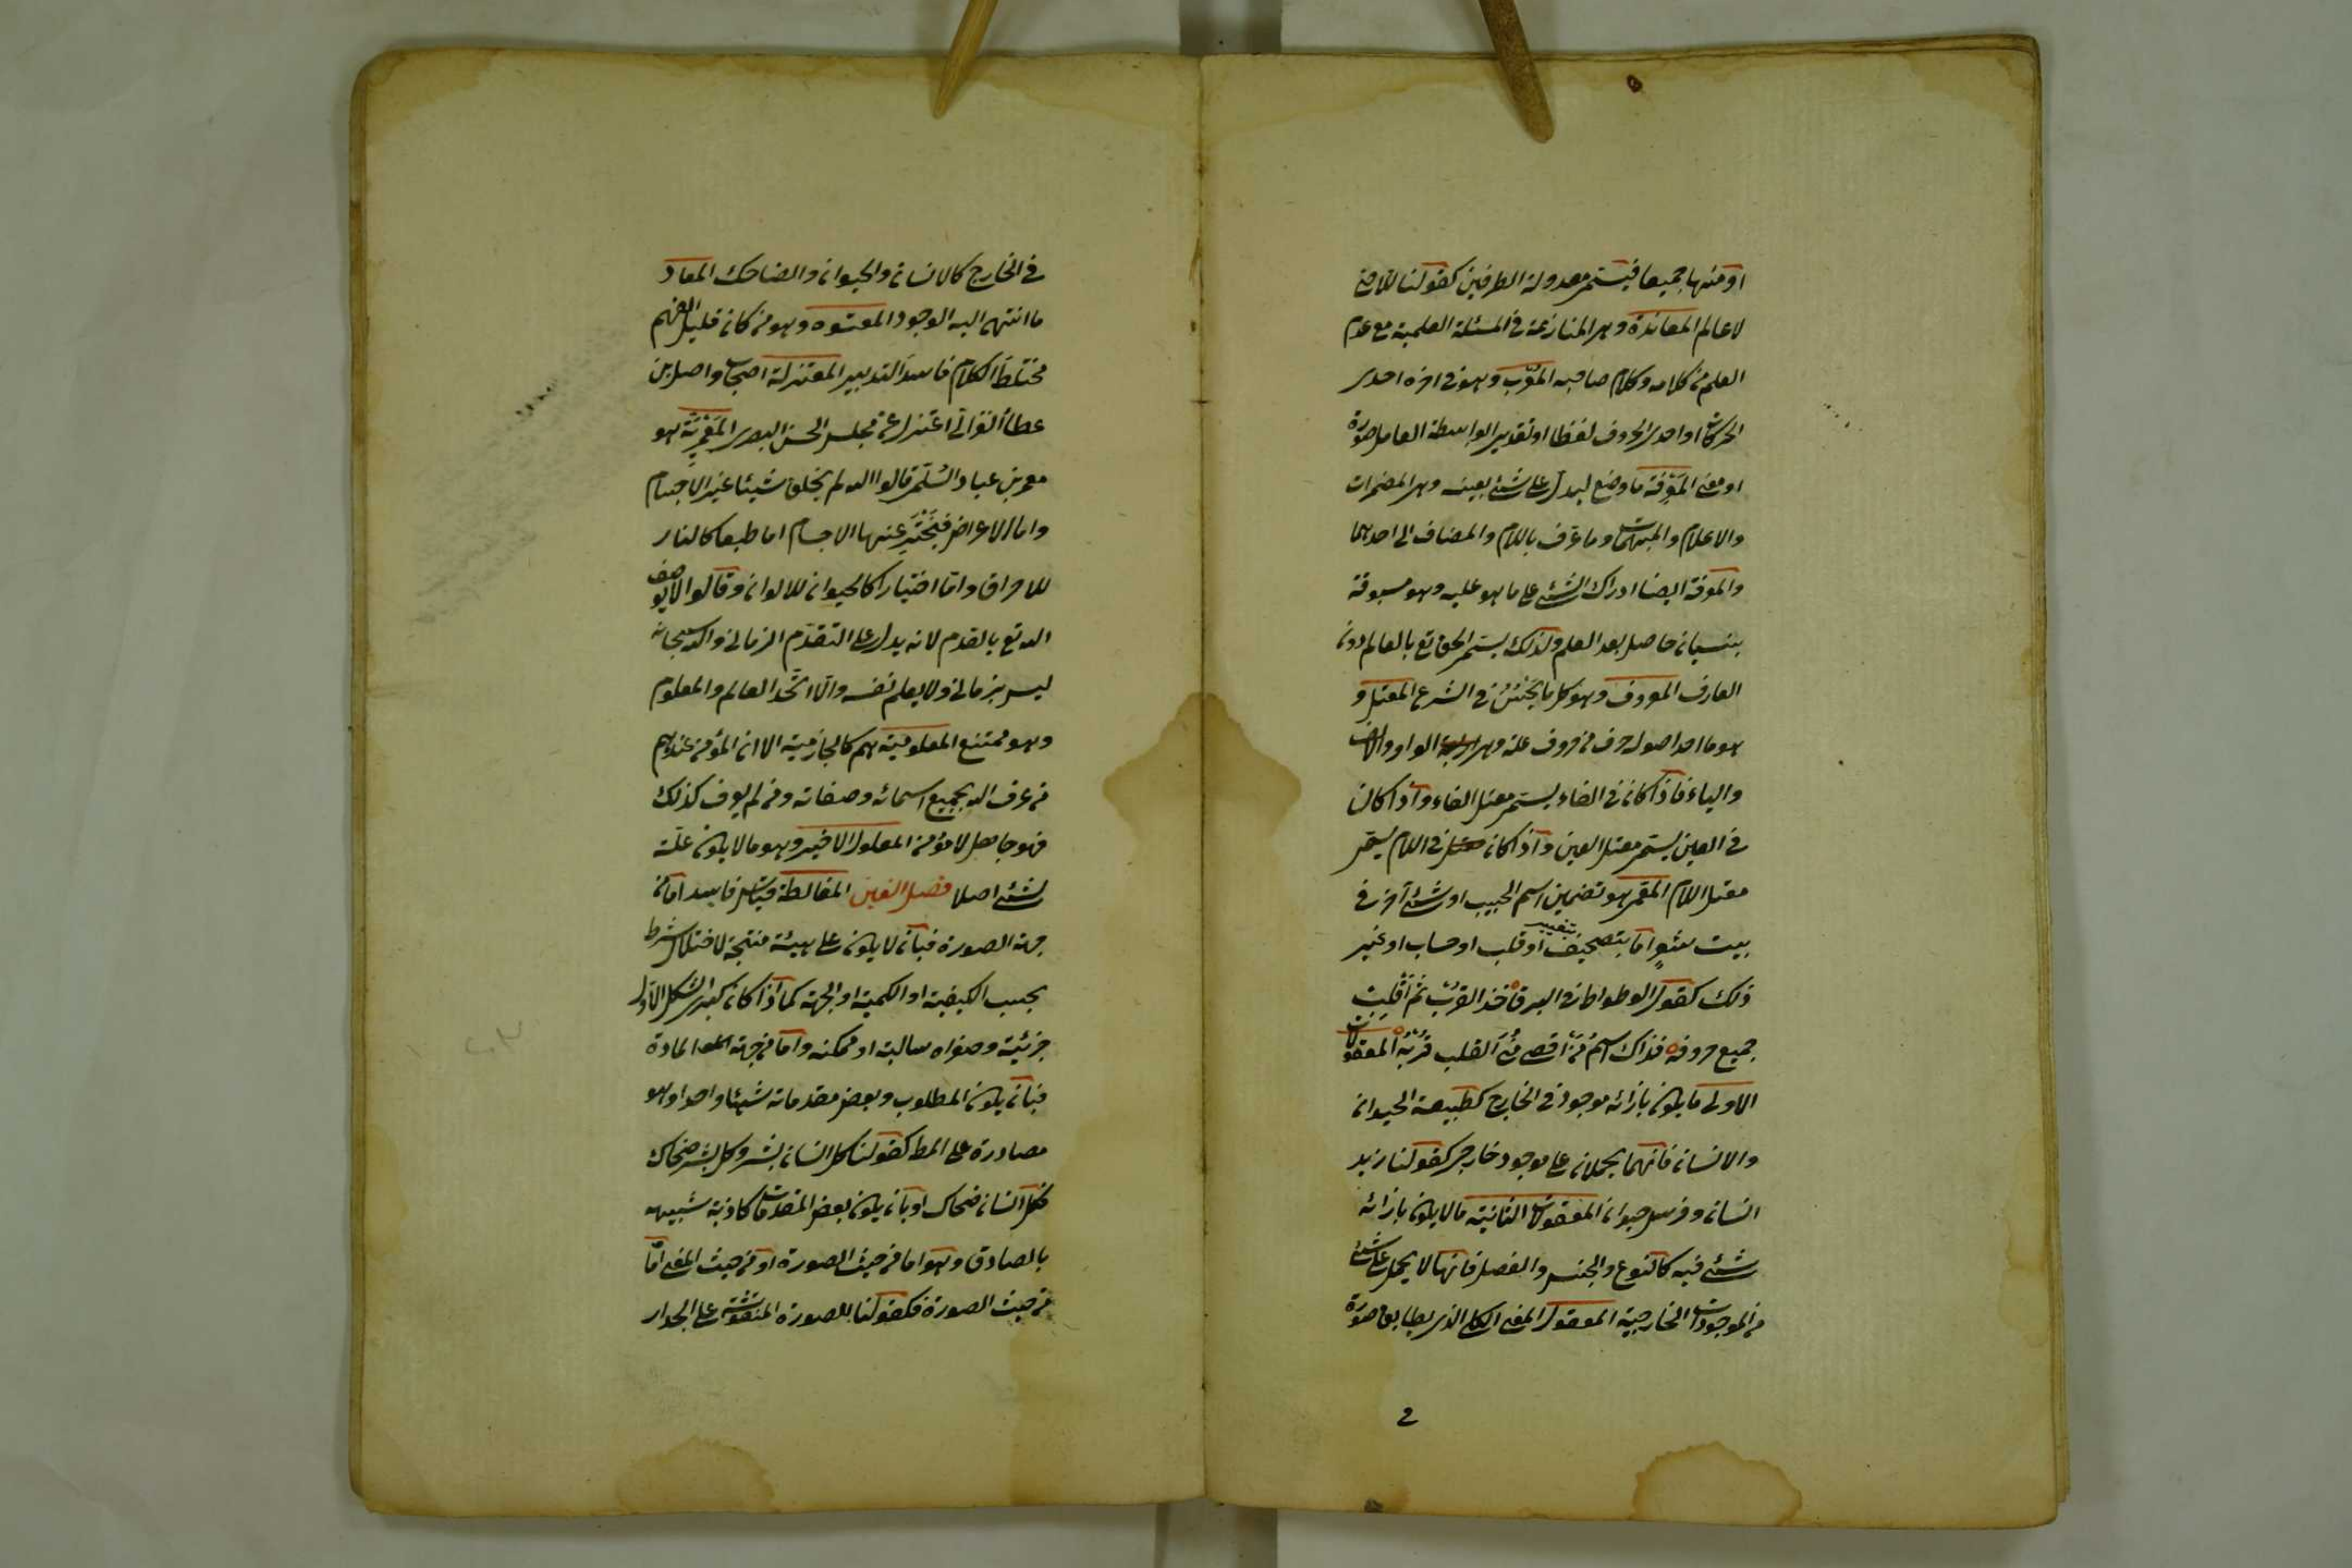 او منهما جميعا فيسمى معدولة الطرفين كقولنا اللاحى
لا عالم المعاندة وهى المنازعة فى المسئلة العلمية مع عدم
العلم من كلامه وكلام صاحبه المعرب وهو فى اخره احدى
الحركات او احدى الحروف لفظا او تقديرا بواسطة العامل صورة
او معنى المعرفة ما وضع ليدل على شئ بعينه وهى المضمرات
والاعلام والمبهمات وما عرف باللام والمضاف الى احدهما
والمعرفة ايضا ادراك الشئ على ما هو عليه وهو مسبوقة
بنسيان حاصل بعد العلم ولذلك يسمى الحق تع بالعالم دون
العارف المعروف وهو كل ما يحسن فى الشرع المعتل و
هو ما احد اصوله حرف من حروف علة وهى الواو والالف
والياء فاذا كان فى الفاء يسمى معتل الفاء واذا كان
فى العين يسمى معتل العين واذا كان فى اللام يسمى
معتل اللام المعمى هو تضمين اسم الحبيب او شئ آخر فى
بيت شعر اما بتصحيف او قلب او حساب او غير
ذلك كقول الوطواط فى البرق خذ القرب ثم اقلب
جميع حروفه فذاك اسم من اقصى منى القلب قربه المعقولات
الاولى ما يكون بازائه موجود فى الخارج كطبيعة الحيوان
والانسان فانهما يحملان على موجود خارجى كقولنا زيد
انسان وفرس حيوان المعقولات الثانية ما لا يكون بازائه
شئ فيه كالنوع والجنس والفصل فانها لا يحمل على شئ
من الموجودات الخارجية المعقول المعنى الكلى الذى يطابق صورة
فى الخارج كالانسان والحيوان والضاحك المعاد
ما انتهى اليه الوجود المعتوه وهو من كان قليل الفهم
مختلط الكلام فاسد التدبير المعتزلة اصحاب واصل بن
عطا الغزالى اعتزل عن مجلس الحسن البصرى المعمرية هو
معمر بن عباد السلمى قالوا الله لم يخلق شيئا غير الاجسام
واما الاعراض فيخترعها الاجسام اما طبعا كالنار
للاحراق واما اختيارا كالحيوان للالوان وقالوا لا يوصف
الله تع بالقدم لانه يدل على التقدم الزمانى والله سبحانه
ليس بزمانى ولا يعلم نفسه والا اتحد العالم والمعلوم
وهو ممتنع المعلومية هم كالجازمية الا ان المؤمن عندهم
من عرف الله بجميع اسمائه وصفاته ومن لم يعرف كذلك
فهو جاهل لا مؤمن المعلول الاخير وهو ما لا يكون علة
لشئ اصلا فصل الغين المغالطة قياس فاسد اما من
جهة الصورة فبان لا يكون على هيئة منتجة لاختلال شرط
بحسب الكيفية او الكمية او الجهة كما اذا كان كبرى الشكل الاول
جزئية وصغراه سالبة او ممكنة واما من جهة المادة
فبان يكون المطلوب وبعض مقدماته شيئا واحدا وهو
مصادرة على المط كقولنا كل انسان بشر وكل بشر ضحاك
فكل انسان ضحاك او بان يكون بعض المقدمات كاذبة شبيهة
بالصادق وهو اما من حيث الصورة او من حيث المعنى اما
من حيث الصورة فكقولنا للصورة المنقوشة على الجدار